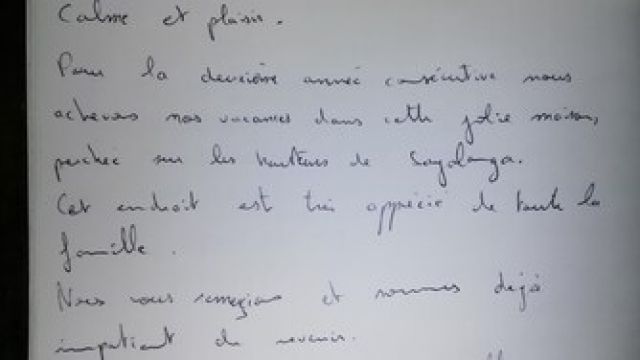 Calme et plaisir.
Pour la deuxième année consécutive nous
achevons nos vacances dans cette jolie maison,
perchée sur les hauteurs de Sayalonga.
Cet endroit est très apprécié de toute la
famille.
Nous vous remercions et sommes déjà
impatient de revenir.